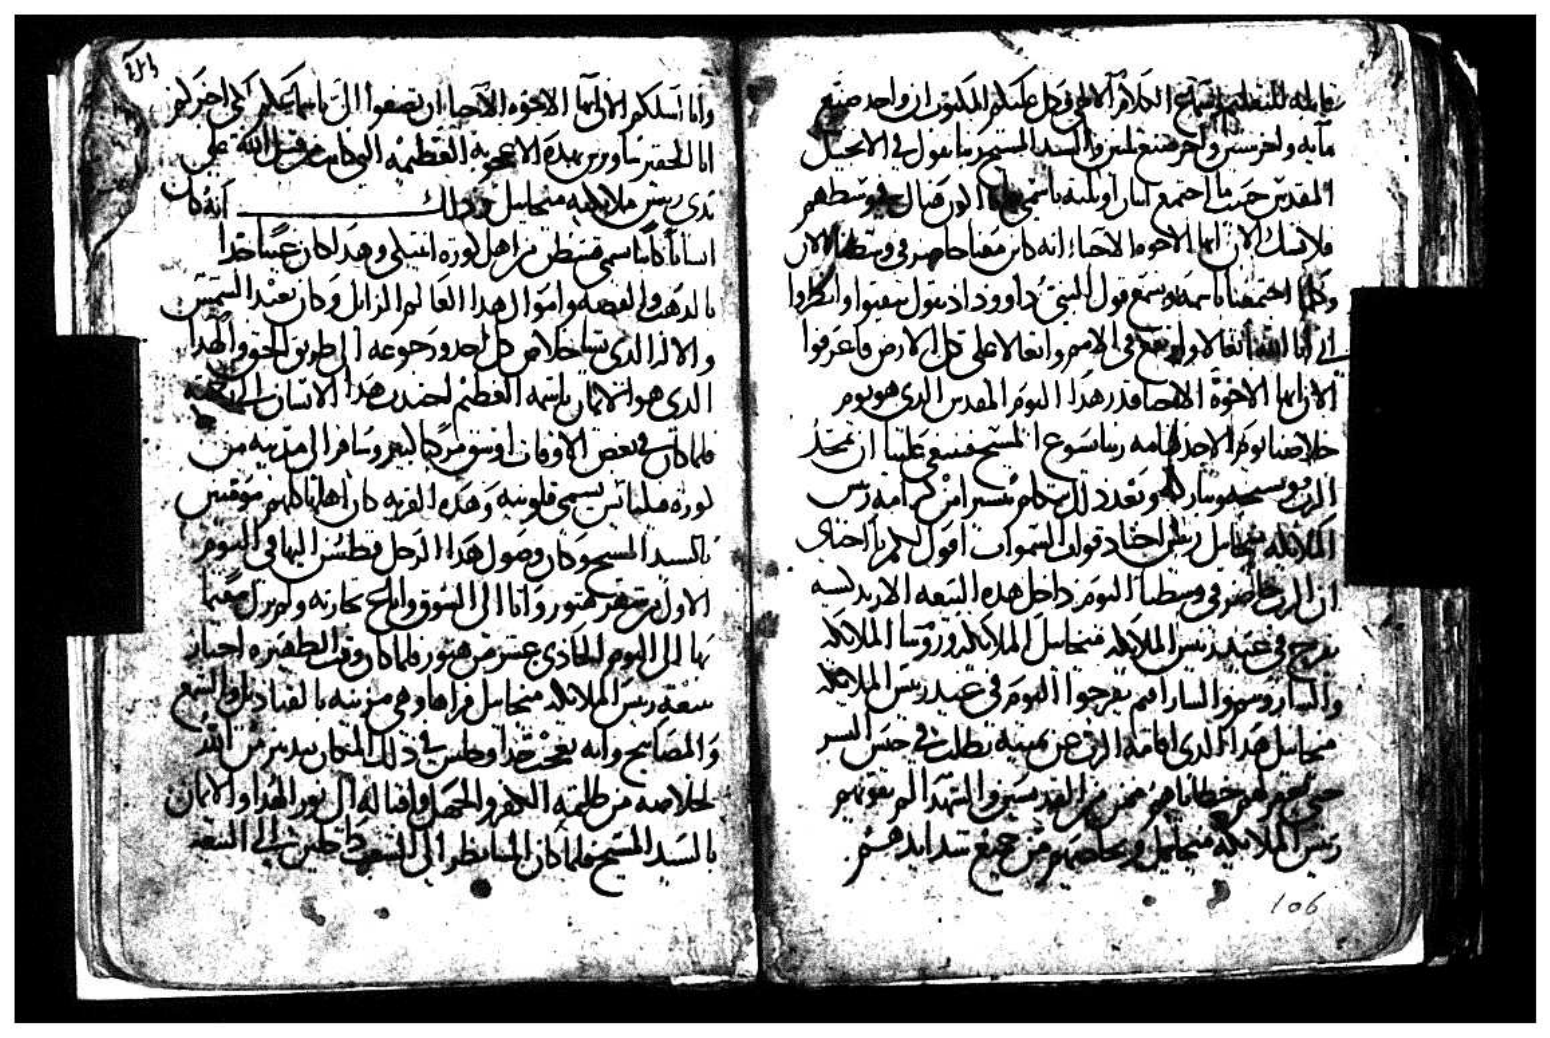 قابله للتعليم استماع الكلام الالاهي وكل عملكم المكتوب ان واحد صنع
مايه واخر ستين واخر صنع ثلثين والسيد المسيح ربنا يقول في الانجيل
المقدس حيث ما اجتمع اثنان او ثلثه باسمي انا اكون هناك في وسطهم
فلا نشك الان ايها الاخوه الاحباء انه كاين معنا حاضر في وسطنا الان
وكلما اجتمعنا باسمه ونسمع قول النبي داوود اذ يقول تيقنوا وانظروا
اني انا الله اتعالا وارتفع في الامم واتعالا على كل الارض فاعرفوا
الان ايها الاخوة الاحبا قدر هذا اليوم المقدس الذي هو يوم
خلاصنا يوم الاحد قيامه ربنا يسوع المسيح فينبغي علينا ان نمجد
الرب ونسبحه ونباركه وبعد ذلك نتكلم يسير امن كرامه ريس
الملايكه ميخاييل ريس اجناد قوات السموات اقول لكم يا احباي
ان الرب حاضر في وسطنا اليوم داخل هذه البيعه الاريدكسيه
يفرح في عيد ريس الملايكه ميخاييل الملايكه وروسا الملايكه
والشاروبيم والسارافيم يفرحوا اليوم في عيد ريس الملايكه
ميخاييل هذا الذي اقامه الرب عن يمينه يطلب في جنس البشر
حتى يغفر لهم خطاياهم فمن من القديسين والشهدا لم يقويهم
ريس الملايكه ميخاييل ويخلصهم من جميع شدايدهم
106
وانا اسلكم الان ايها الاخوه الاحباء ان تصغوا الي باسماعكم لكي اخبركم
انا الحقير تاودرس بهذه الاعجوبه العظيمه التي كانت من قبل الله على
يدى ريس ملايكته ميخاييل وذلك انه كان
انسانا كان اسمي قسطن من اهل كوره انتيكي وهذا كان غنيا جدا
بالذهب والفضه واموال هذا العالم الزايل وكان يعبد الشمس
والاله الذي يشا خلاص كل احد ورجوعه الى طريق الحق والهدا
الذي هو الايمان باسمه العظيم لجذب هذا الانسان اليه
فلما كان في بعض الاوقات اوسق مركبا كبير وسافر الى مدينه من
كوره فيلبايس يسمى قلونيه وهذه القريه كان اهلها كلهم موقنين
بالسيد المسيح وكان وصول هذا الرجل قطسن اليها في اليوم
الاول من شهر هتور واتا الى السوق واباع تجارته ولم يزل مقيما
بها الى اليوم الحادي عشر من هتور فلما كان وقت الظهيره اجتاز
ببيعة ريس الملايكه ميخاييل فراها وهي مزينه بالقناديل والشمع
والمصابيح وانه تعجب جدا وجلس في ذلك المكان بتدبير من الله
لخلاصه من ظلمة الكفر والجهل واقباله الى نور الهدا والايمان
بالسيد المسيح فلما كان المسا نظر الى الشعب داخلين الى البيعه